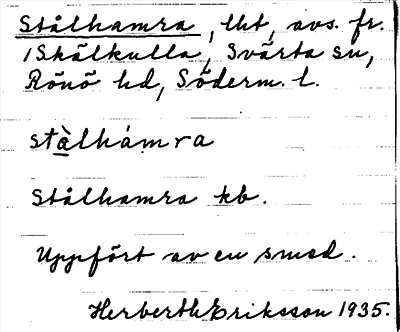 Stålhamra, lht, avs. fr.
1 Skälkulla, Svärta sn,
Rönö hd, Söderm. l.
stålhámra
Stålhamra kb.
Uppfört av en smed.
Herberth Eriksson 1935.